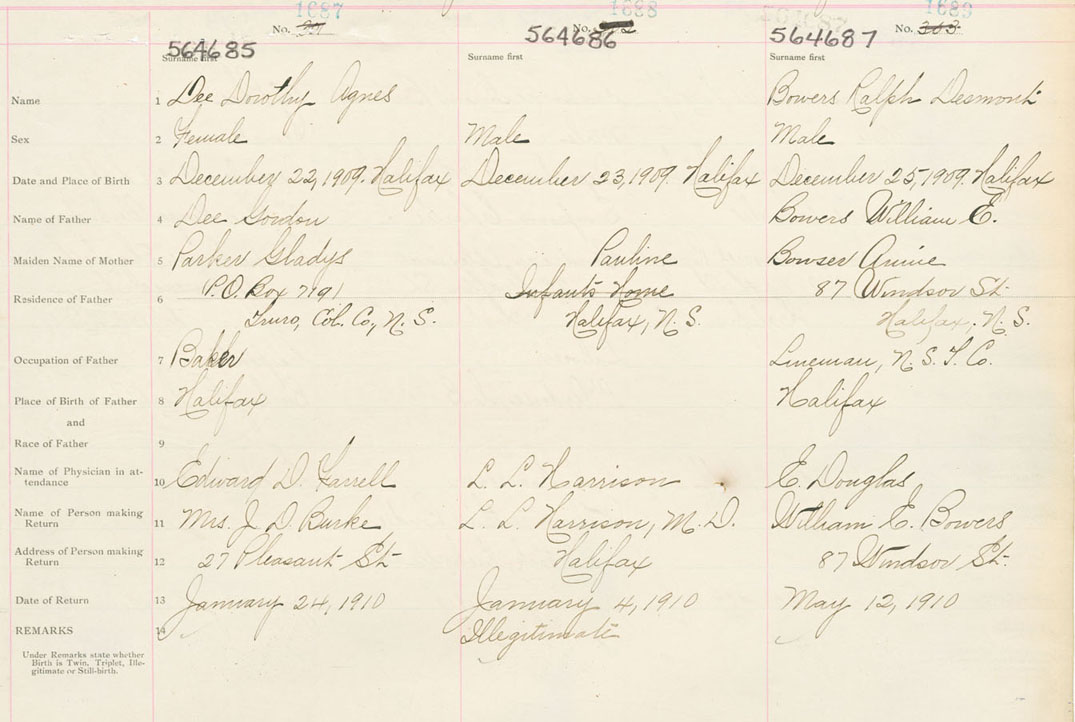 1687 1688 1689
No. No. No. 363
564685 564686 564687
Surname first Surname first Surname first
Name 1 Dee Dorothy Agnes Bowers Ralph Desmont
Sex 2 Female Male Male
Date and Place of Birth 3 December 22, 1909. Halifax December 23, 1909. Halifax December 25, 1909. Halifax
Name of Father 4 Dee Gordon Bowers William E.
Maiden Name of Mother 5 Parker Gladys Pauline Bowser Annie
Residence of Father 6 P.O. Box 7191 Infant's Home 87 Windsor St.
Truro, Col. Co., N. S. Halifax, N. S. Halifax, N. S.
Occupation of Father 7 Baker Lineman, N. S. T. Co.
Place of Birth of Father 8 Halifax Halifax
and
Race of Father 9
Name of Physician in at-
tendance 10 Edward D. Farrell L. L. Harrison E. Douglas
Name of Person making
Return 11 Mrs. J. D. Burke L. L. Harrison, M. D. William E. Bowers
Address of Person making
Return 12 27 Pleasant St. Halifax 87 Windsor St.
Date of Return 13 January 24, 1910 January 4, 1910 May 12, 1910
REMARKS 14 Illegitimate
Under Remarks state whether
Birth is Twin, Triplet, Ille-
gitimate or Still-birth.